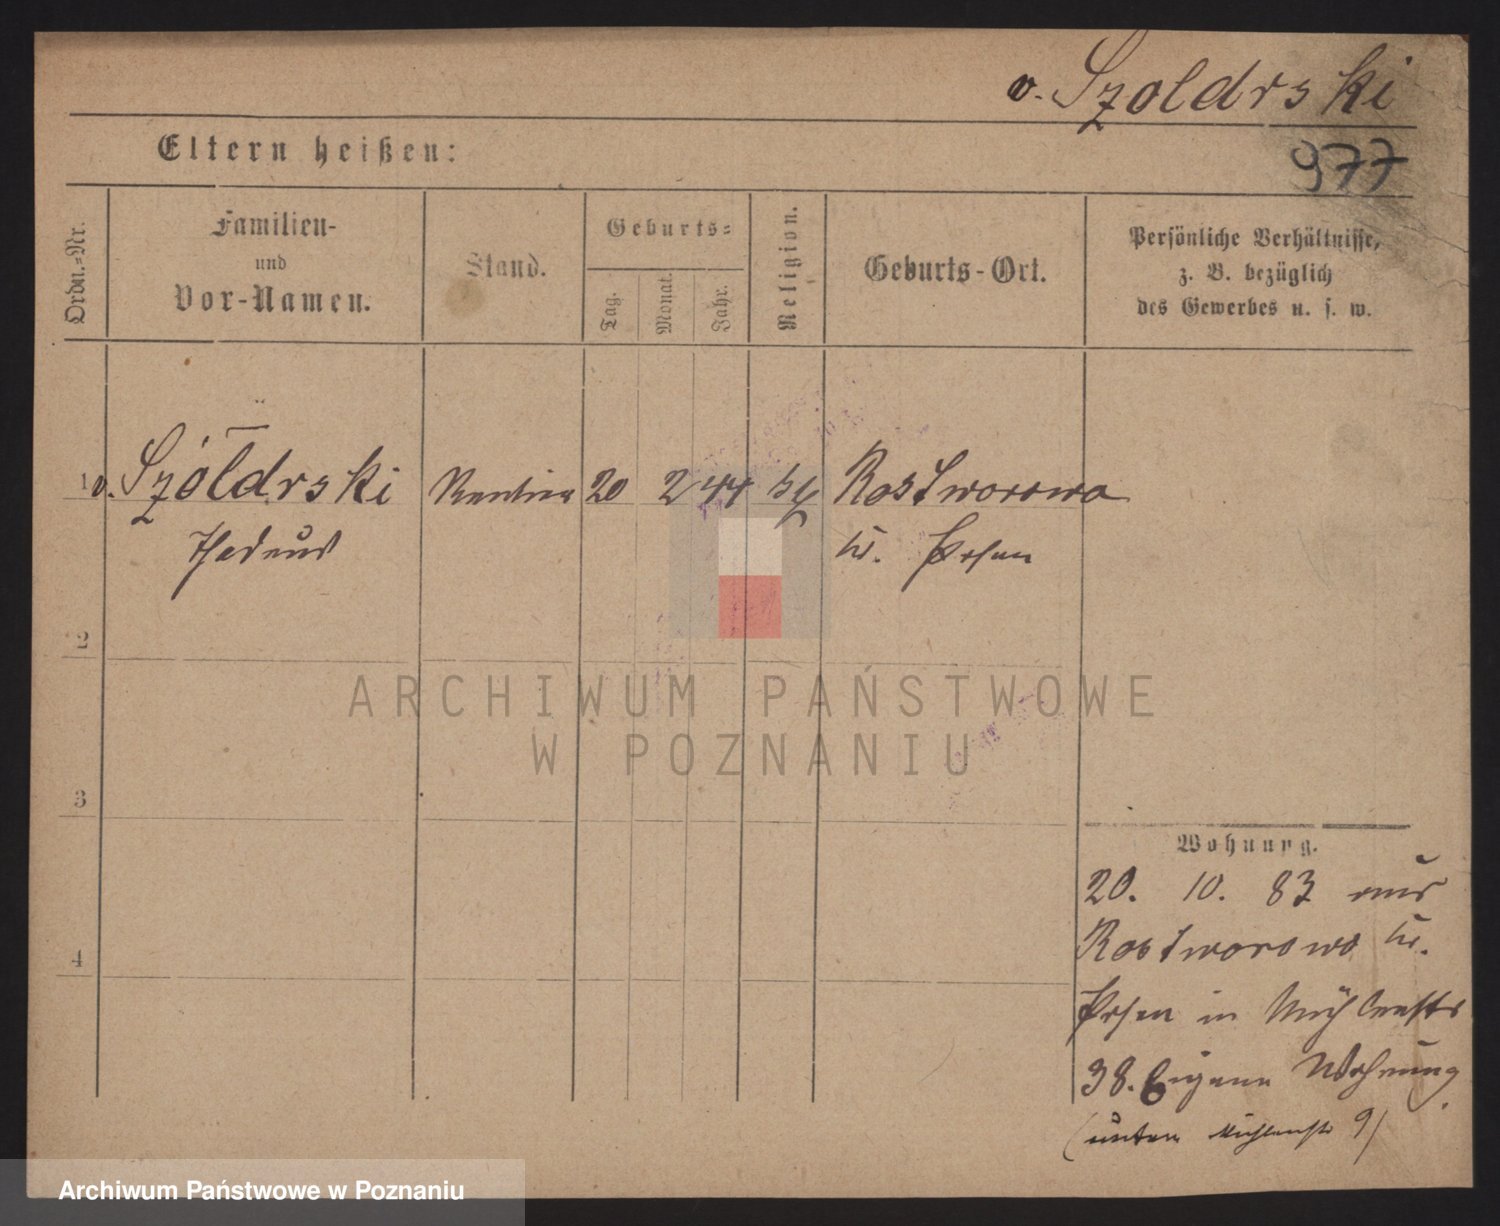 v. Szoldrski
977
Eltern heißen:
Ordn.-Nr.
Familien-
und
Vor-Namen.
Stand.
Geburts-
Tag.
Monat.
Jahr.
Religion.
Geburts-Ort.
Persönliche Verhältnisse,
z. B. bezüglich
des Gewerbes u. s. w.
1 v. Szóldrski Rentier 20 2 44 Rostworowo
Thadeus Kr. Posen
2
ARCHIWUM PAŃSTWOWE
W POZNANIU
3
Wohnung.
20. 10. 83 aus
Rostworowo Kr.
4
Posen in Mühlenstr
38. Eigene Wohnung.
(unten Mühlenstr 9)
Archiwum Państwowe w Poznaniu